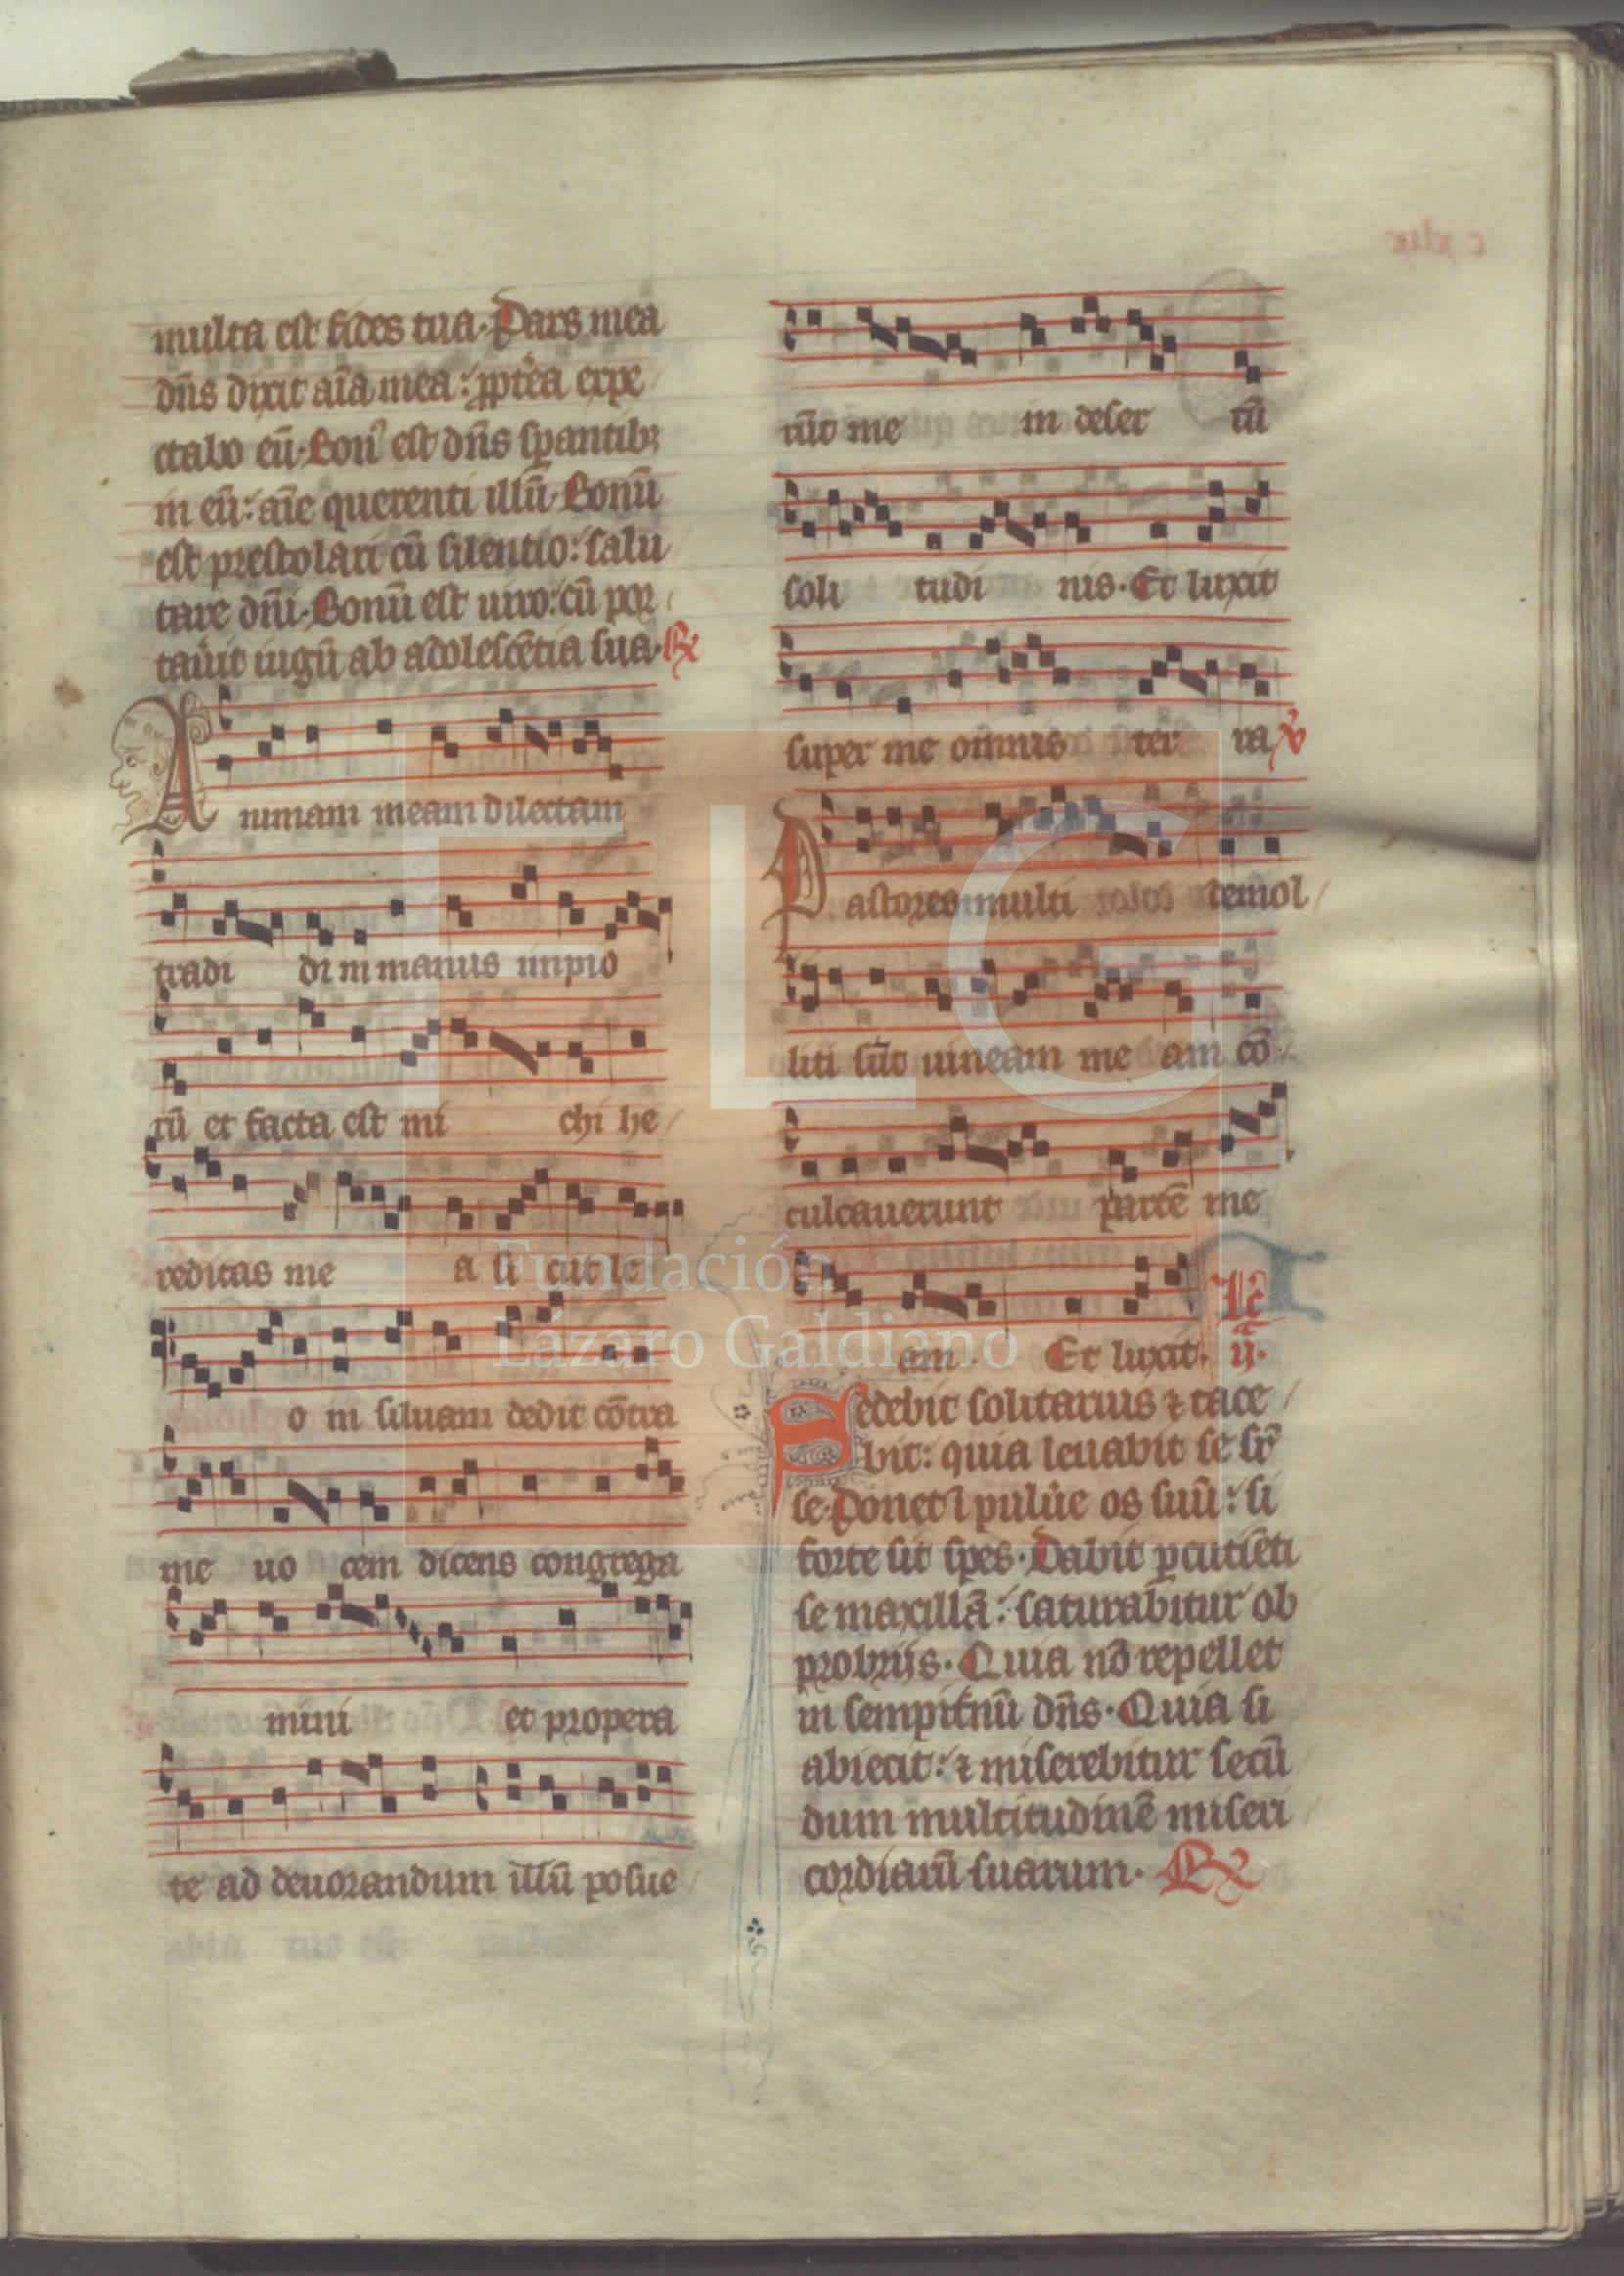 multa est fides tua. Pars mea
dn̄s dixit aīa mea: ꝓpt̄ea expe
ctabo eū. Bonū est dn̄s sꝑantibꝫ
in eū: aīe querenti illū. Bonū
est prestolari cū silentio: salu
tare dn̄i. Bonū est uiro: cū por
tauit iugū ab adolescētia sua. ℟
Animam meam dilectam
tradi di in manus inpio
rū et facta est mi chi he
reditas me a si cut le
o in siluam dedit cōtra
me uo cem dicens congrega
mini et propera
te ad deuorandum illū posue
c xlix
rūt me in deser tū
soli tudi nis. Et luxit
super me omnis ter ra ℣
Pastores multi demol
liti sūt uineam me am cō
culcauerunt partē me
am. Et luxit. Lc̄ ij.
Sedebit solitarius ⁊ tace
bit: quia leuabit se sr̄
se. Ponet ī puluē os suū: si
forte sit spes. Dabit ꝑcutiēti
se maxillā: saturabitur ob
probrijs. Quia nō repellet
in sempit̄nū dn̄s. Quia si
abiecit: ⁊ miserebitur secū
dum multitudinē miseri
cordiarū suarum. ℟
FLG
Fundación
Lázaro Galdiano